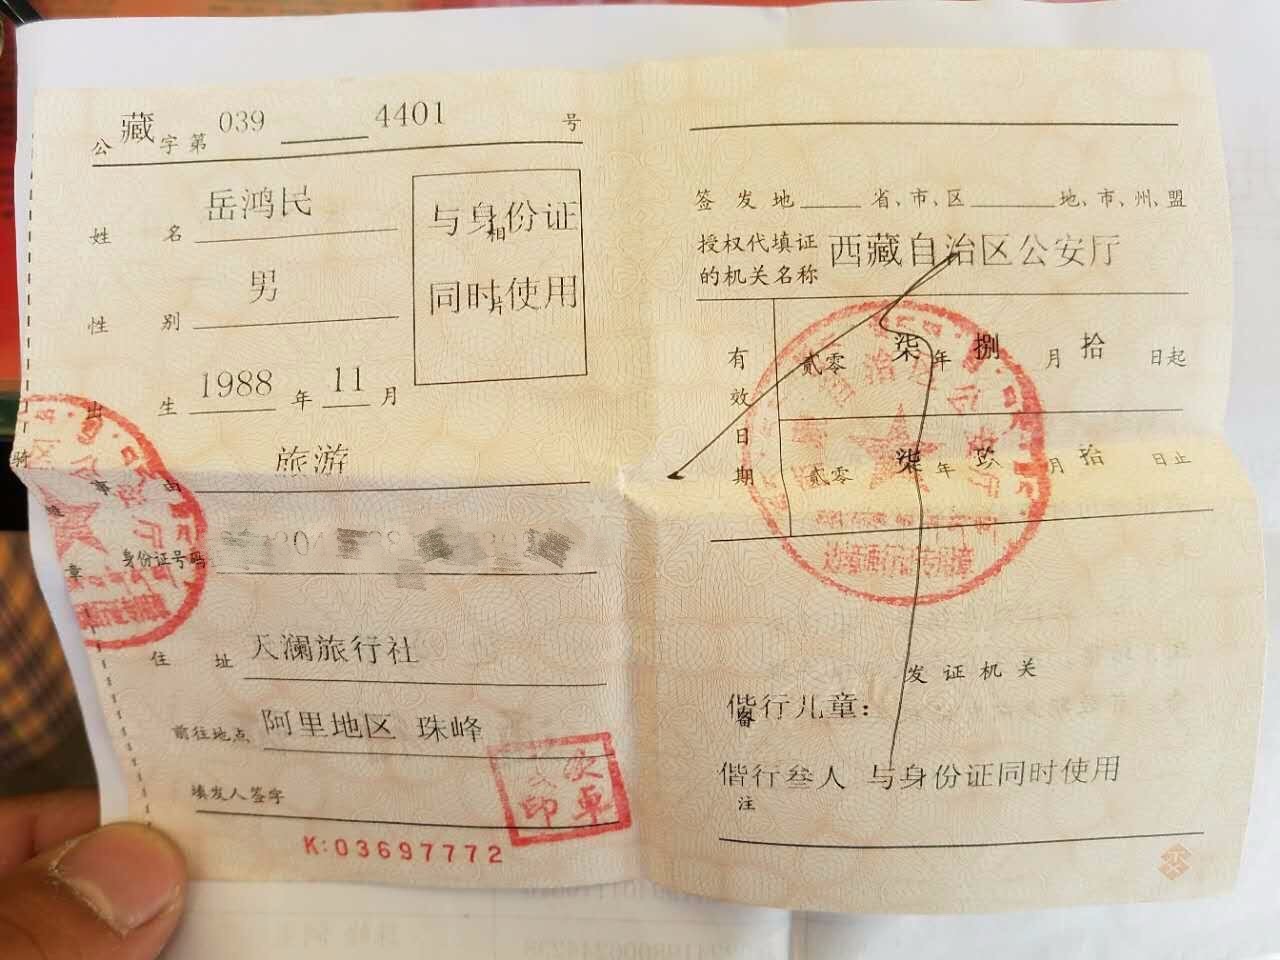 公藏字第039 4401 号
姓名 岳鸿民
性别 男
出生 1988年11月
与身份证
相
同时使用
片
事由 旅游
身份证号码
住址 天澜旅行社
前往地点 阿里地区 珠峰
填发人签字
次
印 卓
K:03697772
骑
缝
章
签发地 省、市、区 地、市、州、盟
授权代填证
的机关名称 西藏自治区公安厅
有效日期
贰零 柒年 捌月 拾 日起
贰零 柒年 玖月 拾 日止
边境通行证专用章
发证机关
偕行儿童：
备
偕行叁人 与身份证同时使用
注